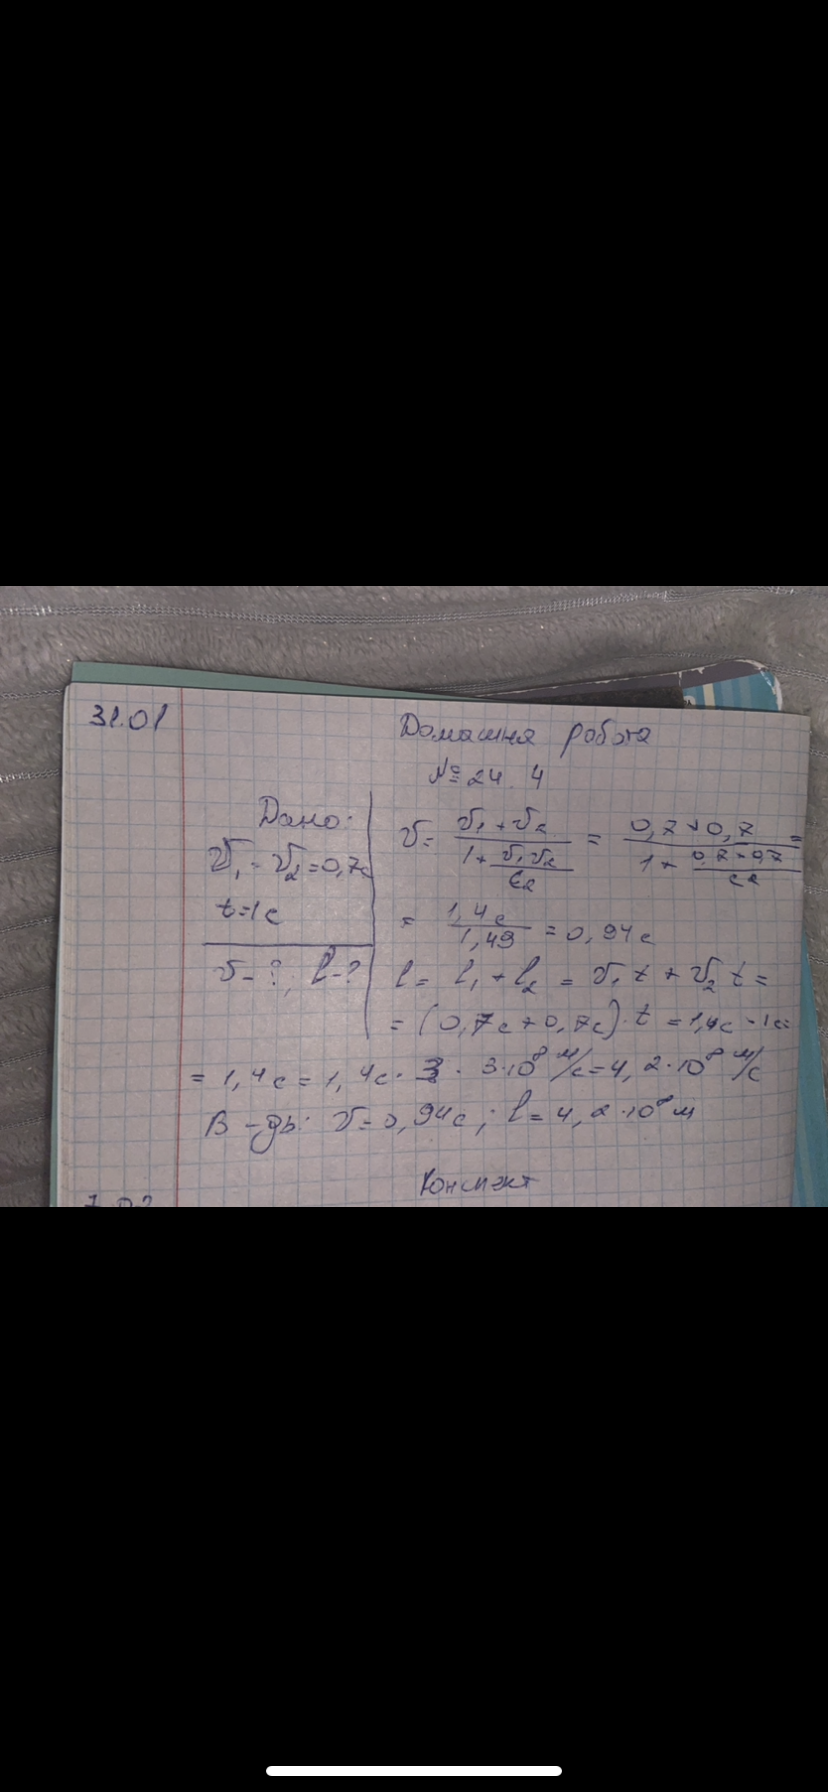 31.01
Домашня робота
№ 24.4
Дано:
v₁ = v₂ = 0,7c
t = 1 c
v - ?, l - ?
v = (v₁ + v₂) / (1 + v₁v₂/c²) = (0,7 + 0,7) / (1 + 0,7 · 0,7/c²) =
= 1,4c / 1,49 = 0,94c
l = l₁ + l₂ = v₁t + v₂t =
= (0,7c + 0,7c) · t = 1,4c · 1c =
= 1,4c = 1,4c · 3 · 3·10⁸ м/c = 4,2·10⁸ м/c
В-дь: v = 0,94c; l = 4,2·10⁸ м
Конспект